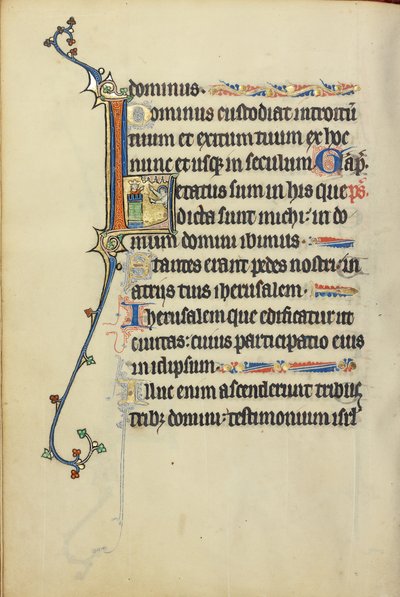 dominus.
Dominus custodiat introitū
tuum et exitum tuum ex hoc
nunc et usqꝫ in seculum Gap̄.
Letatus sum in his que ps̄.
dicta sunt michi: in do
mum domini ibimus.
Stantes erant pedes nostri: in
atrijs tuis iherusalem.
Iherusalem que edificatur ut
ciuitas: cuius participatio eius
in idipsum
Illuc enim ascenderunt tribus
tribꝫ domini: testimonium isrl̄